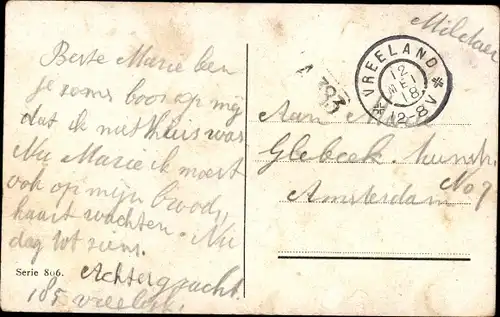 Beste Marie ben
je soms boos op mij
dat ik niet thuis was
Nu Marie ik moest
ook op mijn brood
kaart wachten. Nu
dag tot ziens.
Achtergracht
105 Vreeland
Serie 806.
Militair
VREELAND
12
MEI
18
12-8V
A 393
Aan
Glebeek
Amsterdam No 7